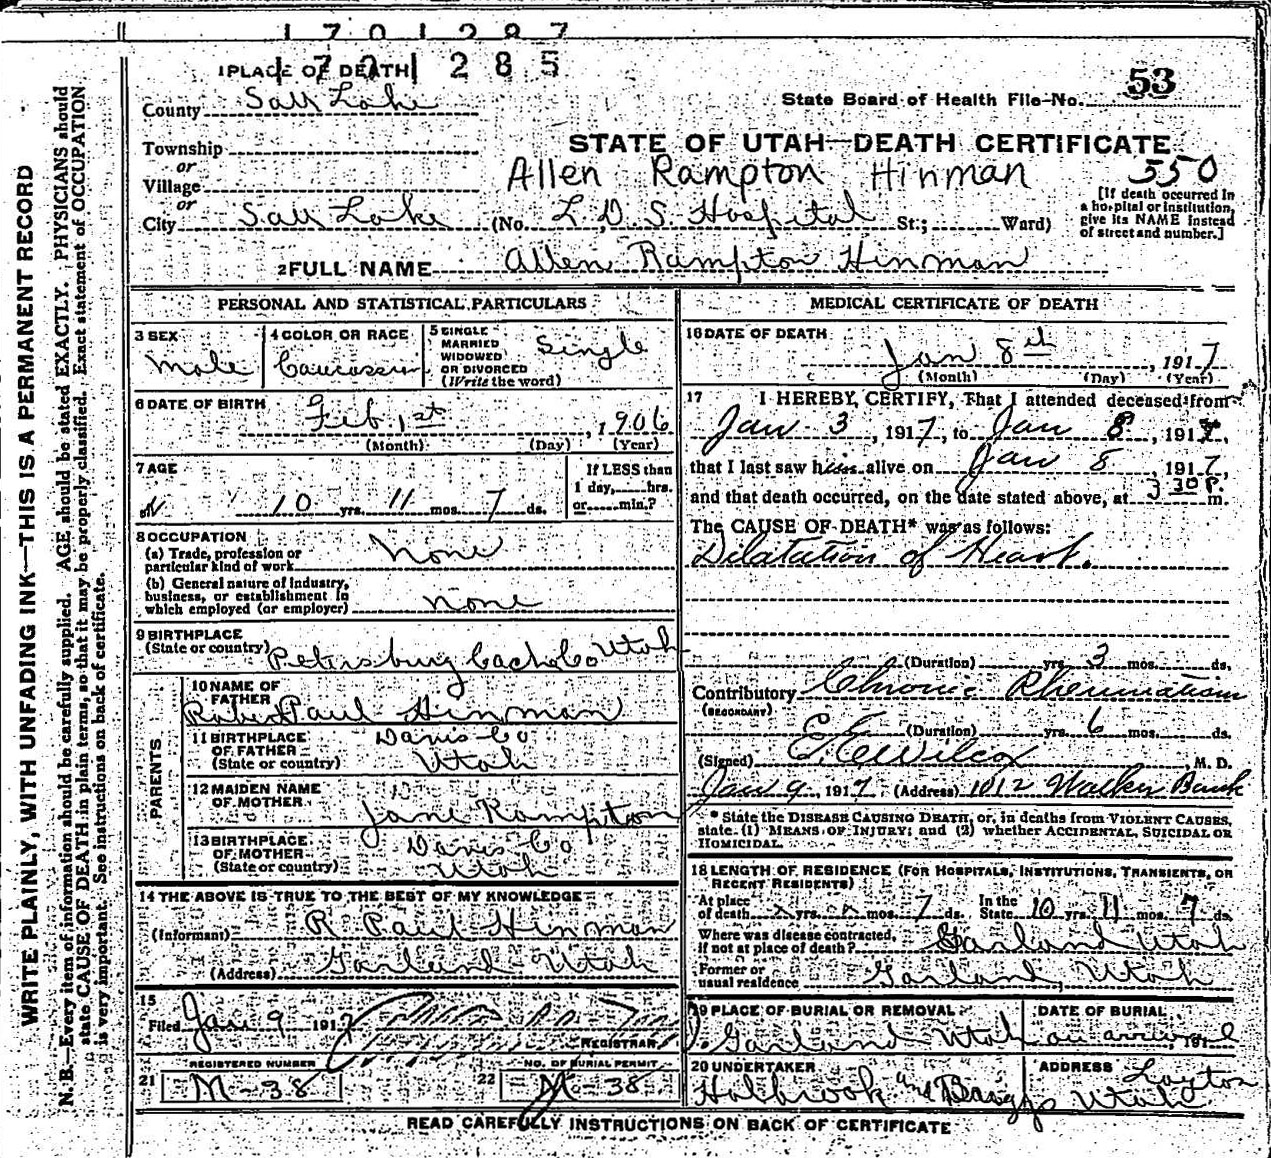 1 7 0 1 2 8 7
1 7 0 1 2 8 5
1 PLACE OF DEATH
53
County Salt Lake
State Board of Health File No.
Township
STATE OF UTAH—DEATH CERTIFICATE
or
Village
Allen Rampton Hinman
550
or
City Salt Lake (No. L.D.S. Hospital St.; Ward)
[If death occurred in
a hospital or institution,
give its NAME instead
of street and number.]
2 FULL NAME Allen Rampton Hinman
PERSONAL AND STATISTICAL PARTICULARS
3 SEX
Male
4 COLOR OR RACE
Caucassian
5 SINGLE
MARRIED
WIDOWED
OR DIVORCED
(Write the word)
Single
6 DATE OF BIRTH
Feb 1st, 1906
(Month) (Day) (Year)
7 AGE
10 yrs. 11 mos. 7 ds.
If LESS than
1 day, hrs.
or min.?
8 OCCUPATION
(a) Trade, profession or
particular kind of work None
(b) General nature of industry,
business, or establishment in
which employed (or employer) none
9 BIRTHPLACE
(State or country) Petersburg Cache Co Utah
PARENTS
10 NAME OF
FATHER
Robert Paul Hinman
11 BIRTHPLACE
OF FATHER
(State or country)
Davis Co
Utah
12 MAIDEN NAME
OF MOTHER
Jane Rampton
13 BIRTHPLACE
OF MOTHER
(State or country)
Davis Co
Utah
14 THE ABOVE IS TRUE TO THE BEST OF MY KNOWLEDGE
(Informant) R Paul Hinman
(Address) Garland Utah
15
Filed Jan 9 1917
REGISTRAR
REGISTERED NUMBER
21 M-38
NO. OF BURIAL PERMIT
22 M-38
MEDICAL CERTIFICATE OF DEATH
16 DATE OF DEATH
Jan 8th, 1917
(Month) (Day) (Year)
17 I HEREBY CERTIFY, That I attended deceased from
Jan 3, 1917, to Jan 8, 1917,
that I last saw him alive on Jan 8, 1917,
and that death occurred, on the date stated above, at 3 30 P. m.
The CAUSE OF DEATH* was as follows:
Dilatation of Heart.
(Duration) yrs. 3 mos. ds.
Contributory Chronic Rheumatism
(SECONDARY)
(Duration) yrs. 6 mos. ds.
(Signed) E. E. Wilcox, M. D.
Jan 9, 1917 (Address) 1012 Walker Bank
* State the DISEASE CAUSING DEATH, or, in deaths from VIOLENT CAUSES,
state (1) MEANS OF INJURY; and (2) whether ACCIDENTAL, SUICIDAL OR
HOMICIDAL.
18 LENGTH OF RESIDENCE (FOR HOSPITALS, INSTITUTIONS, TRANSIENTS, OR
RECENT RESIDENTS)
At place
of death x yrs. x mos. 7 ds.
In the
State 10 yrs. 11 mos. 7 ds.
Where was disease contracted,
if not at place of death? Garland Utah
Former or
usual residence Garland, Utah
19 PLACE OF BURIAL OR REMOVAL
Garland Utah
DATE OF BURIAL
on arrival
20 UNDERTAKER
Holbrook and Baggs
ADDRESS
Layton
Utah
READ CAREFULLY INSTRUCTIONS ON BACK OF CERTIFICATE
WRITE PLAINLY, WITH UNFADING INK—THIS IS A PERMANENT RECORD
N. B.—Every item of information should be carefully supplied. AGE should be stated EXACTLY. PHYSICIANS should
state CAUSE OF DEATH in plain terms, so that it may be properly classified. Exact statement of OCCUPATION
is very important. See instructions on back of certificate.